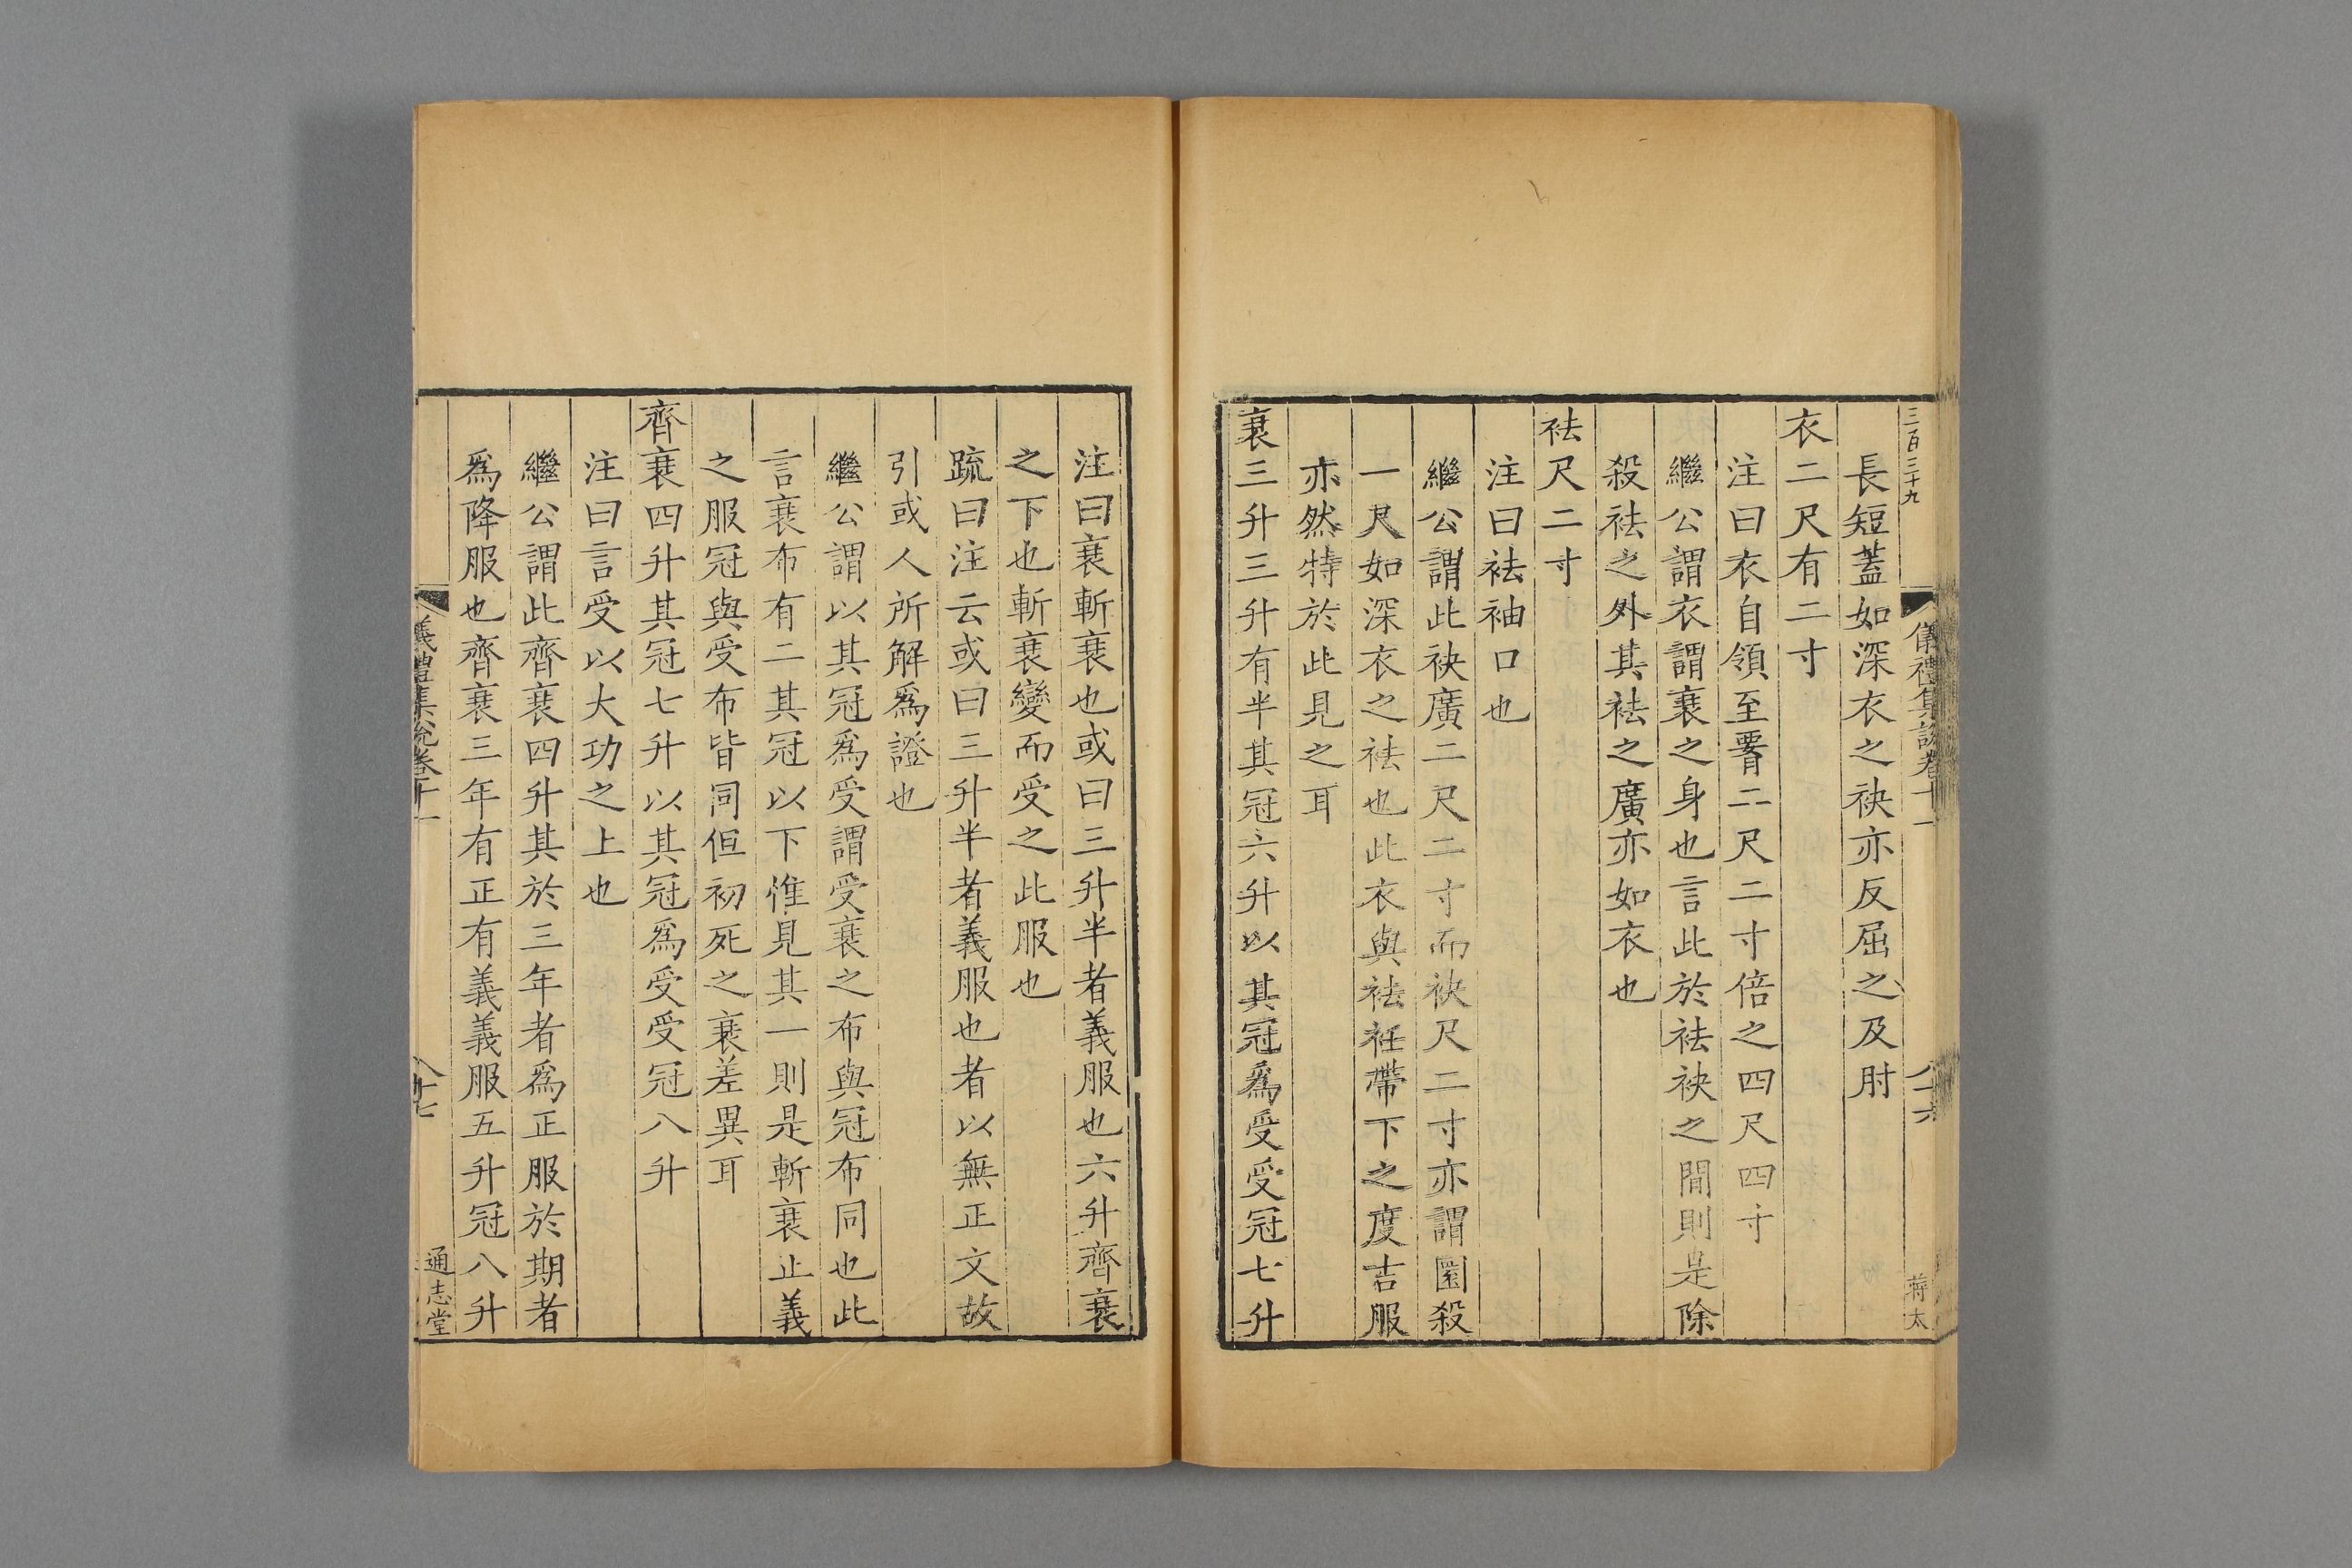 三百三十九
儀禮集說卷十一
八十六
蔣太
長短蓋如深衣之袂亦反屈之及肘
衣二尺有二寸
注曰衣自領至𦝫二尺二寸倍之四尺四寸
繼公謂衣謂衰之身也言此於袪袂之閒則是除
殺袪之外其袪之廣亦如衣也
袪尺二寸
注曰袪袖口也
繼公謂此袂廣二尺二寸而袂尺二寸亦謂圜殺
一尺如深衣之袪也此衣與袪衽帶下之度吉服
亦然特於此見之耳
衰三升三升有半其冠六升以其冠爲受受冠七升
注曰衰斬衰也或曰三升半者義服也六升齊衰
之下也斬衰變而受之此服也
疏曰注云或曰三升半者義服也者以無正文故
引或人所解爲證也
繼公謂以其冠爲受謂受衰之布與冠布同也此
言衰布有二其冠以下惟見其一則是斬衰止義
之服冠與受布皆同但初死之衰差異耳
齊衰四升其冠七升以其冠爲受受冠八升
注曰言受以大功之上也
繼公謂此齊衰四升其於三年者爲正服於期者
爲降服也齊衰三年有正有義義服五升冠八升
儀禮集說卷十一
八十七
通志堂